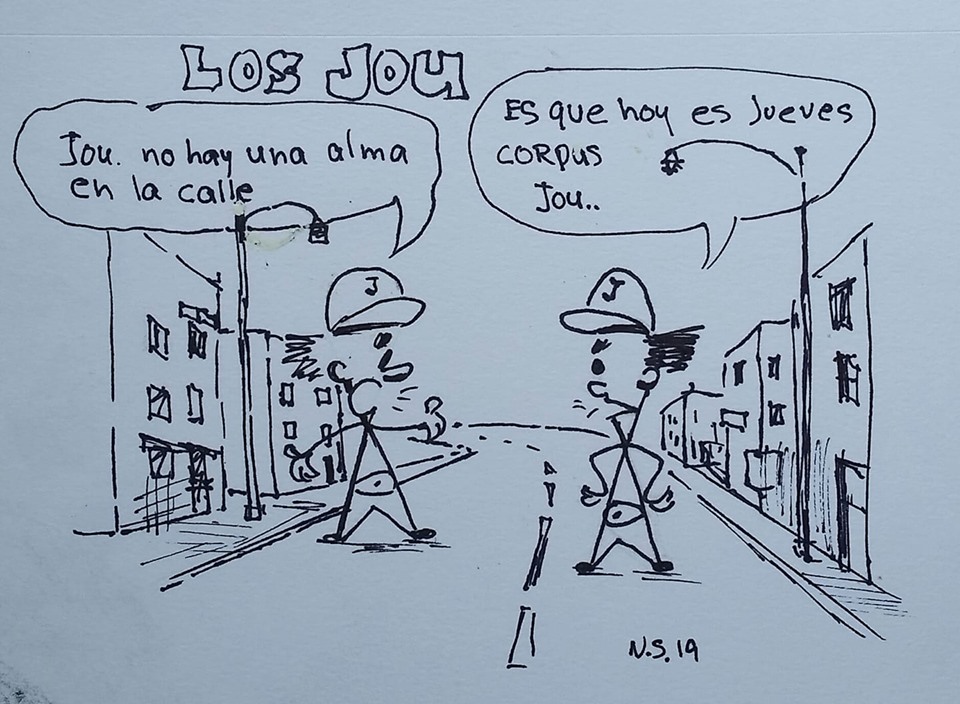 LOS JOU
Jou. no hay una alma
en la calle
Es que hoy es Jueves
CORPUS
Jou..
J
J
N.S. 19